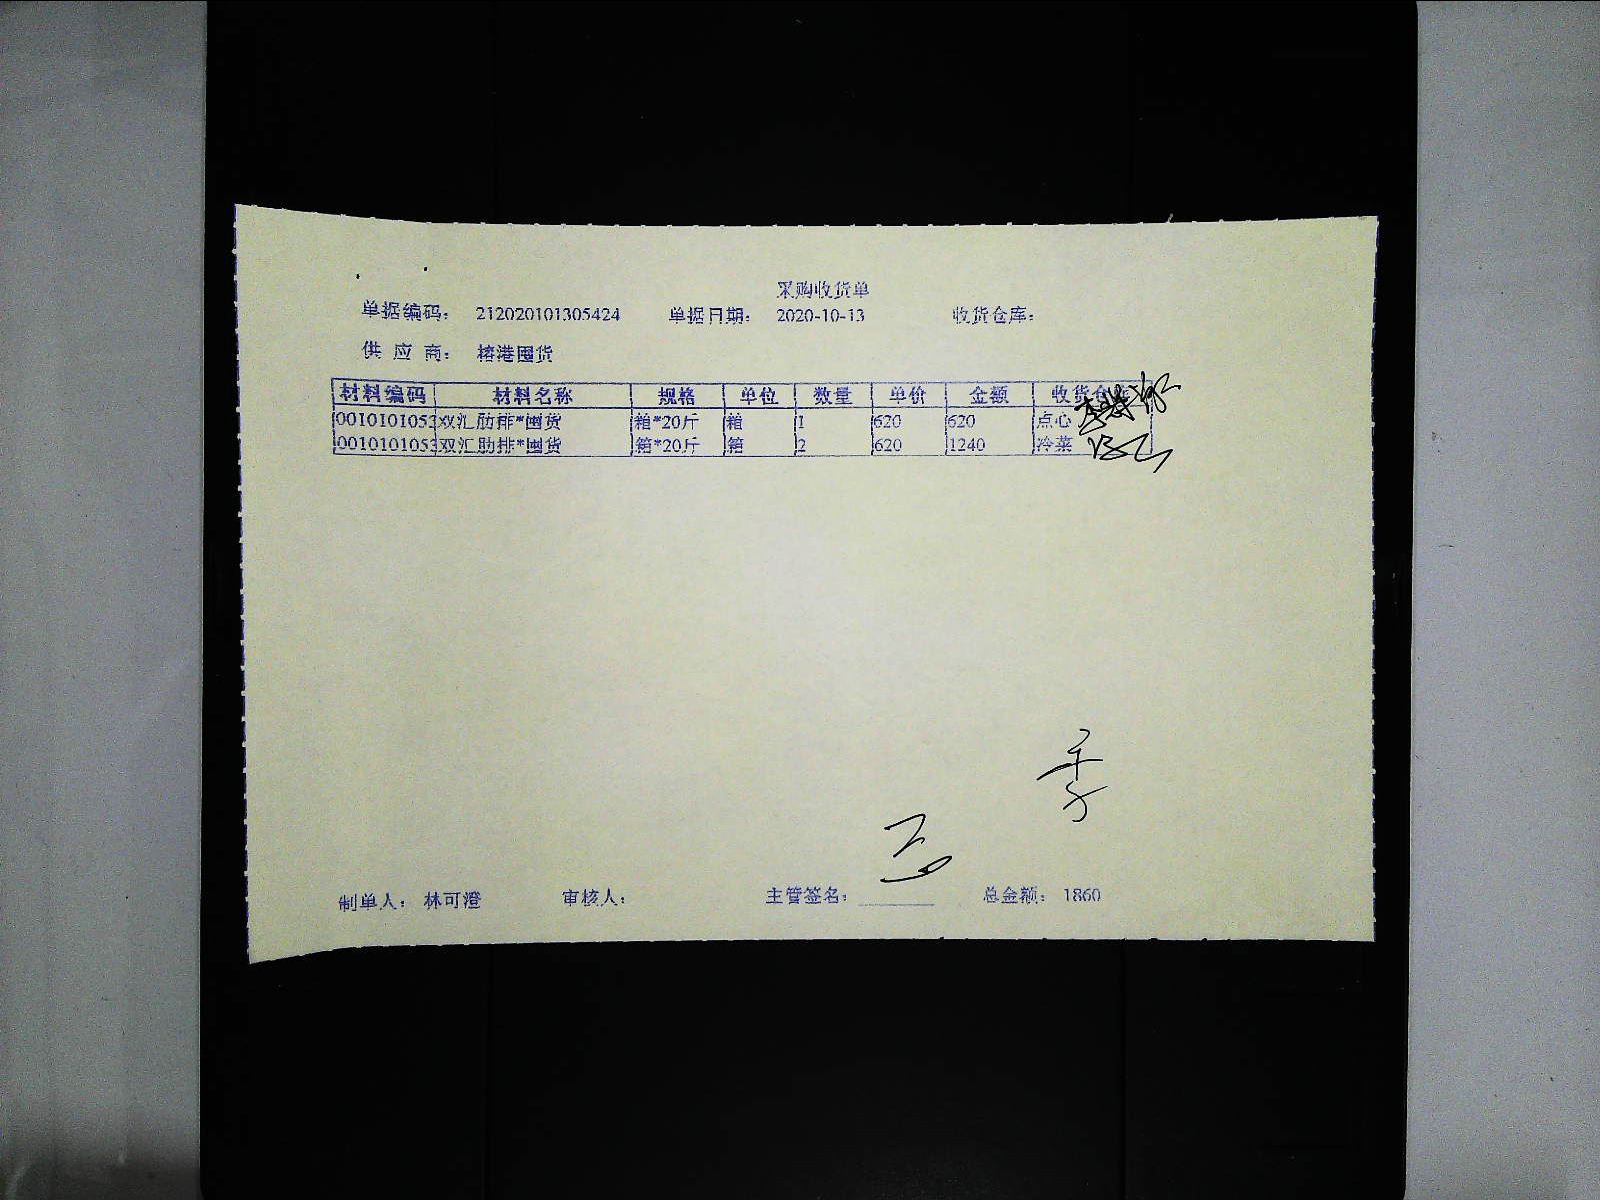 采购收货单
单据编码： 212020101305424 单据日期： 2020-10-13 收货仓库：
供 应 商： 榕港囤货
材料编码 材料名称 规格 单位 数量 单价 金额 收货仓
0010101053 双汇肋排*囤货 箱*20斤 箱 1 620 620 点心
0010101053 双汇肋排*囤货 箱*20斤 箱 2 620 1240 冷菜
季
制单人： 林可澄 审核人： 主管签名： 总金额： 1860